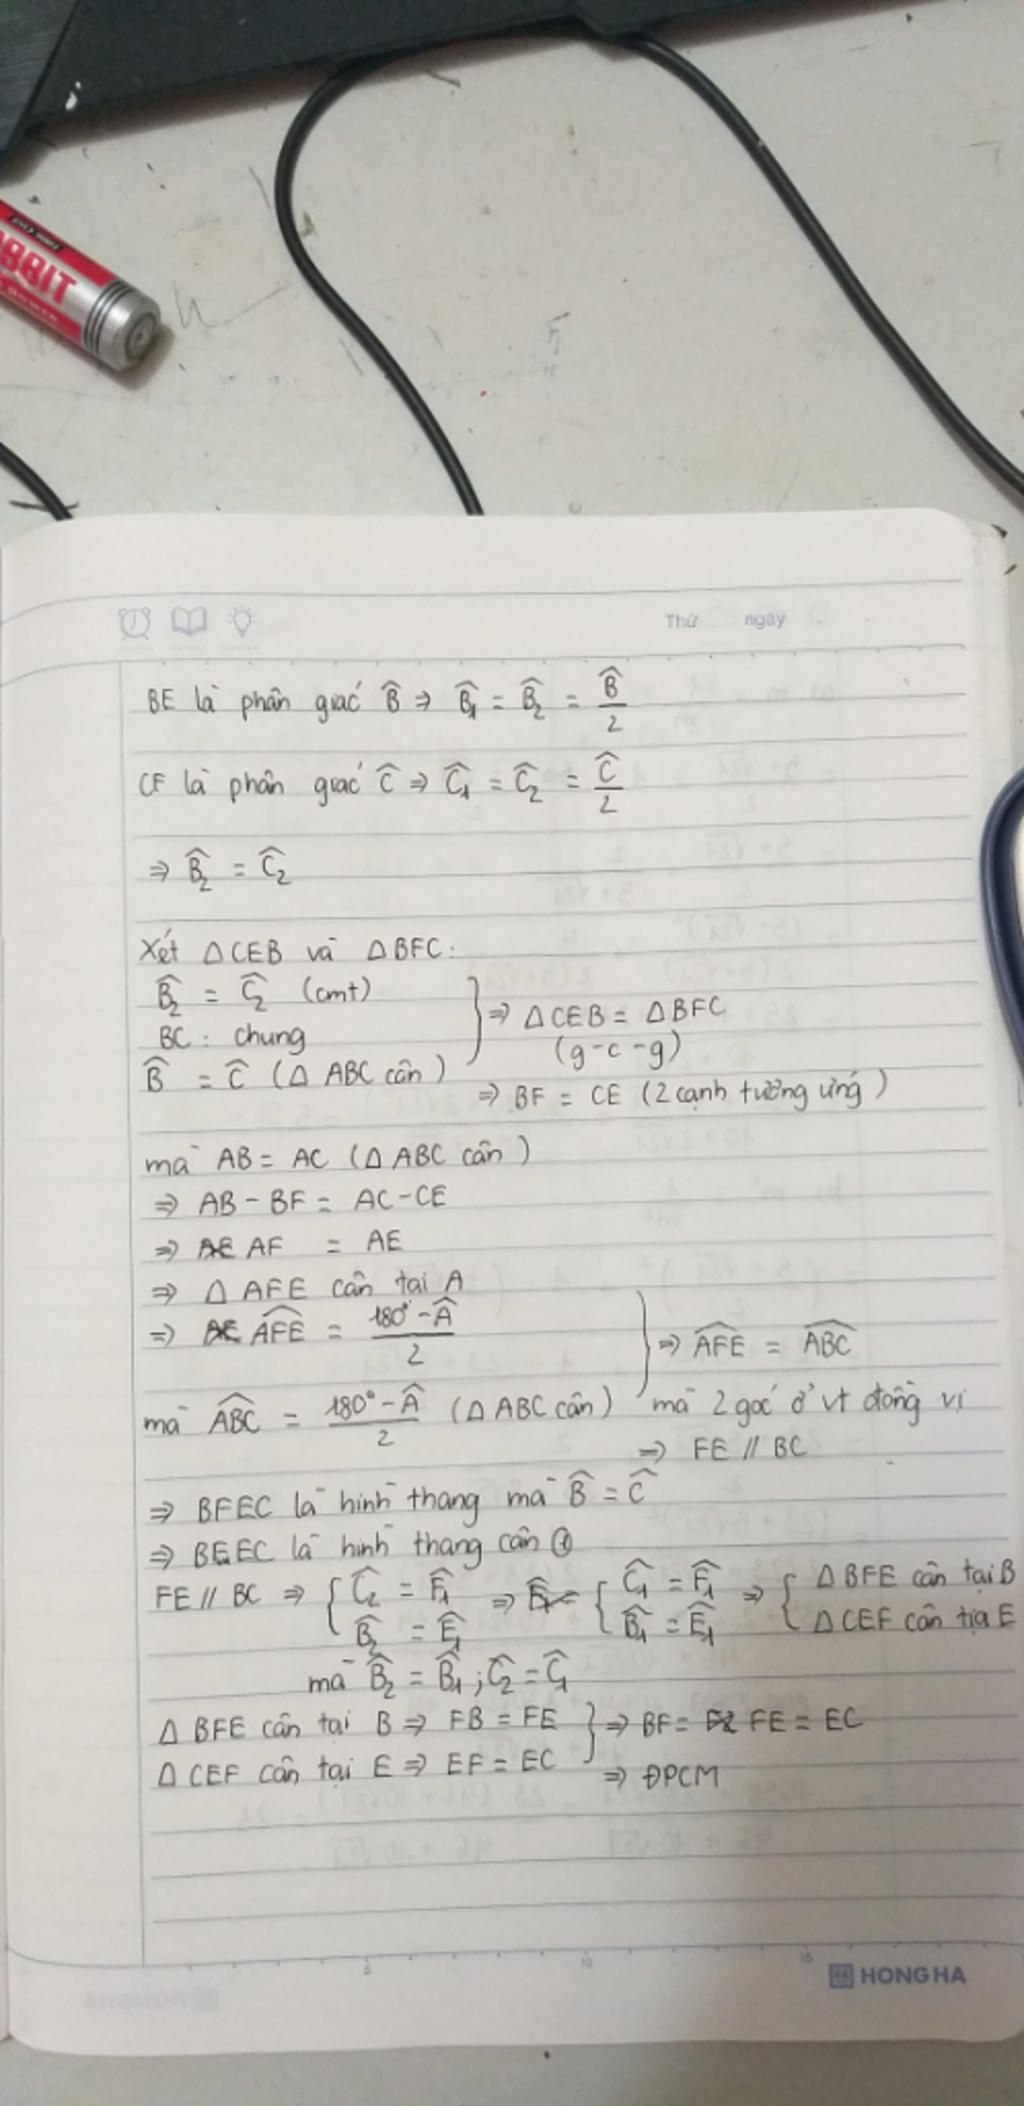 BBIT
POWER
Thứ ngày
BE là phân giác B̂ ⇒ B̂₁ = B̂₂ = B̂/2
CF là phân giác Ĉ ⇒ Ĉ₁ = Ĉ₂ = Ĉ/2
⇒ B̂₂ = Ĉ₂
Xét △CEB và △BFC:
B̂₂ = Ĉ₂ (cmt)
BC: chung
B̂ = Ĉ (△ ABC cân)
} ⇒ △CEB = △BFC
(g-c-g)
⇒ BF = CE (2 cạnh tương ứng)
mà AB = AC (△ ABC cân)
⇒ AB - BF = AC - CE
⇒ AF = AE
⇒ △ AFE cân tại A
⇒ AFE^ = (180° - Â)/2
mà ABC^ = (180° - Â)/2 (△ ABC cân)
} ⇒ AFE^ = ABC^
mà 2 góc ở vt đồng vị
⇒ FE // BC
⇒ BFEC là hình thang mà B̂ = Ĉ
⇒ BFEC là hình thang cân ①
FE // BC ⇒ { Ĉ₂ = F̂₁ ⇒ { Ĉ₁ = F̂₁ ⇒ { △ BFE cân tại B
B̂₂ = Ê₁ B̂₁ = Ê₁ △ CEF cân tịa E
mà B̂₂ = B̂₁ ; Ĉ₂ = Ĉ₁
△ BFE cân tại B ⇒ FB = FE } ⇒ BF = FE = EC
△ CEF cân tại E ⇒ EF = EC
⇒ ĐPCM
5 10 15
HH HONG HA